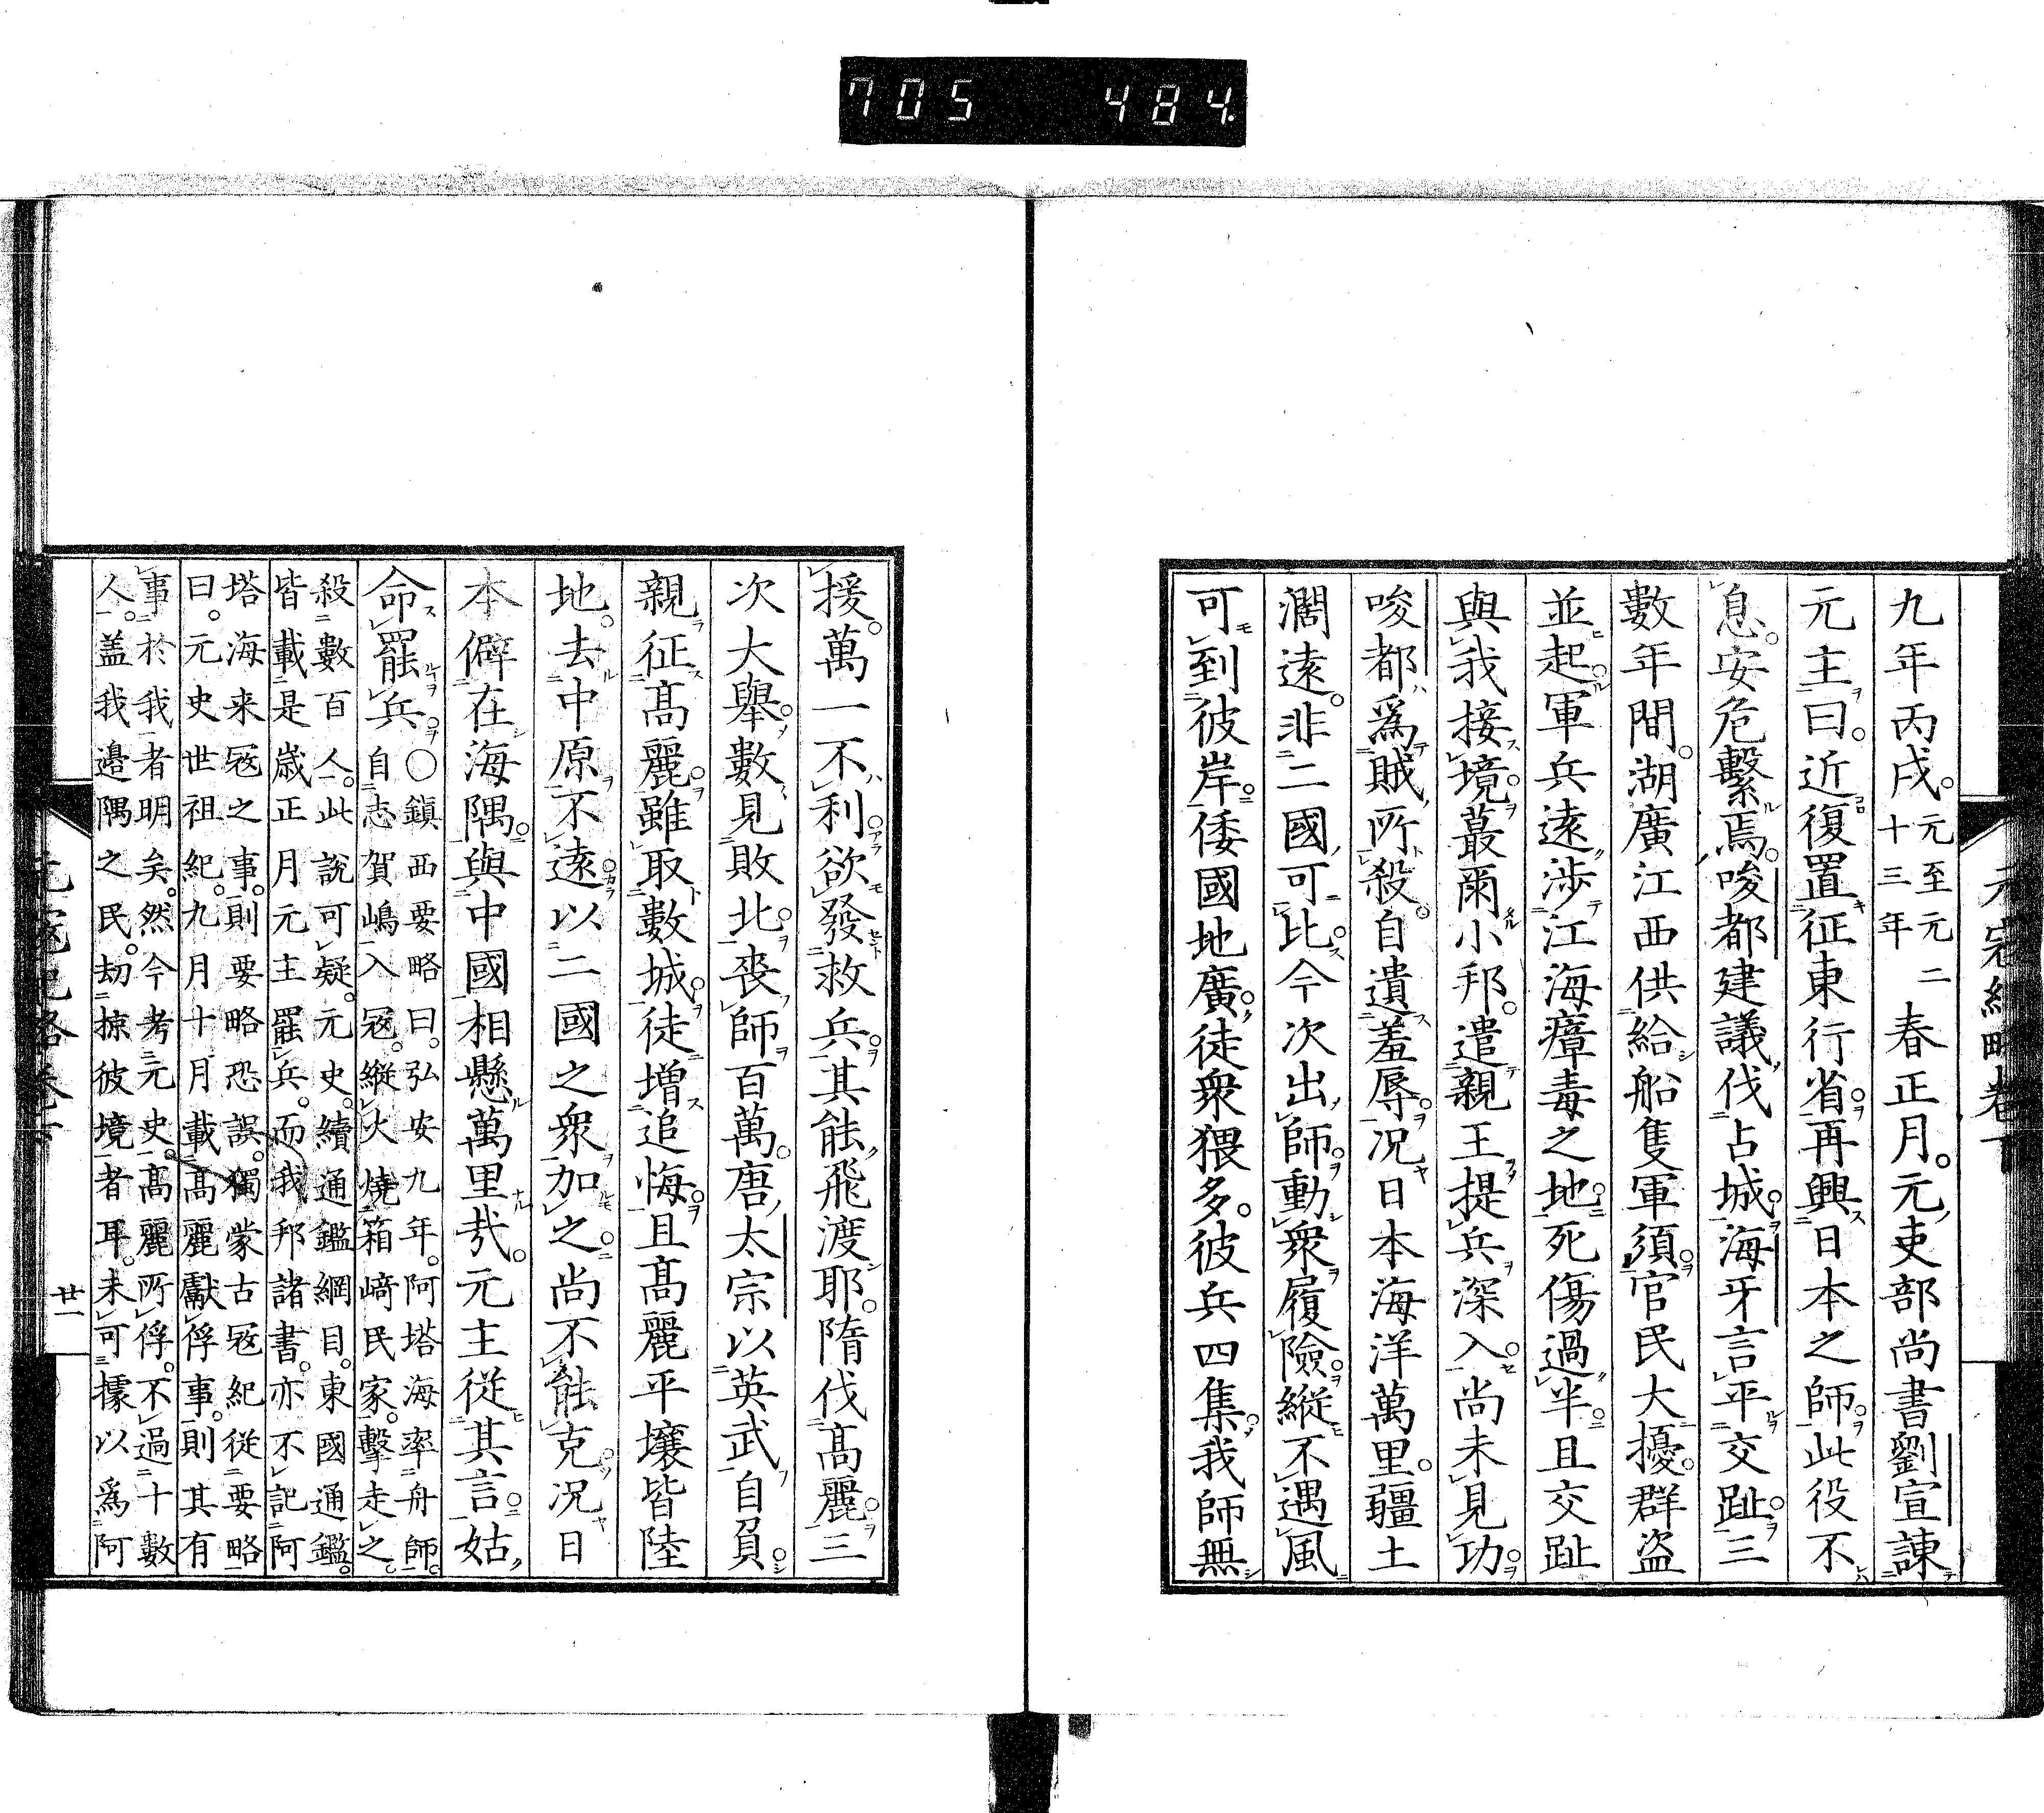 705 484.
元寇紀略卷下
九年丙戌。元至元二十三年春正月。元吏部尚書劉宣諫
元主曰。近復置征東行省。再興日本之師。此役不
息。安危繫焉。唆都建議伐占城。海牙言平交趾。三
數年間。湖廣江西供給船隻軍須。官民大擾。群盗
並起。軍兵遠涉江海瘴毒之地。死傷過半。且交趾
與我接境。蕞爾小邦。遣親王提兵深入。尚未見功。
唆都爲賊所殺。自遺羞辱。况日本海洋萬里。疆土
濶遠。非二國可比。今次出師。動衆履險。縱不遇風
可到彼岸。倭國地廣。徒衆猥多。彼兵四集。我師無
援。萬一不利。欲發救兵。其能飛渡耶。隋伐高麗。三
次大舉。數見敗北。喪師百萬。唐太宗以英武自負。
親征高麗。雖取數城。徒増追悔。且高麗平壤皆陸
地。去中原不遠。以二國之衆加之。尚不能克。况日
本僻在海隅。與中國相懸萬里哉。元主從其言。姑
命罷兵。○鎮西要略曰。弘安九年。阿塔海率舟師。
自志賀嶋入寇。縱火燒箱﨑民家。擊走之。
殺數百人。此說可疑。元史。續通鑑綱目。東國通鑑。
皆載是歳正月元主罷兵。而我邦諸書。亦不記阿
塔海来寇之事。則要略恐誤。獨蒙古寇紀從要略
曰。元史世祖紀。九月十月載高麗獻俘事。則其有
事於我者明矣。然今考元史。高麗所俘。不過十數
人。盖我邉隅之民。劫掠彼境者耳。未可據以爲阿
元寇紀略卷下
廿一